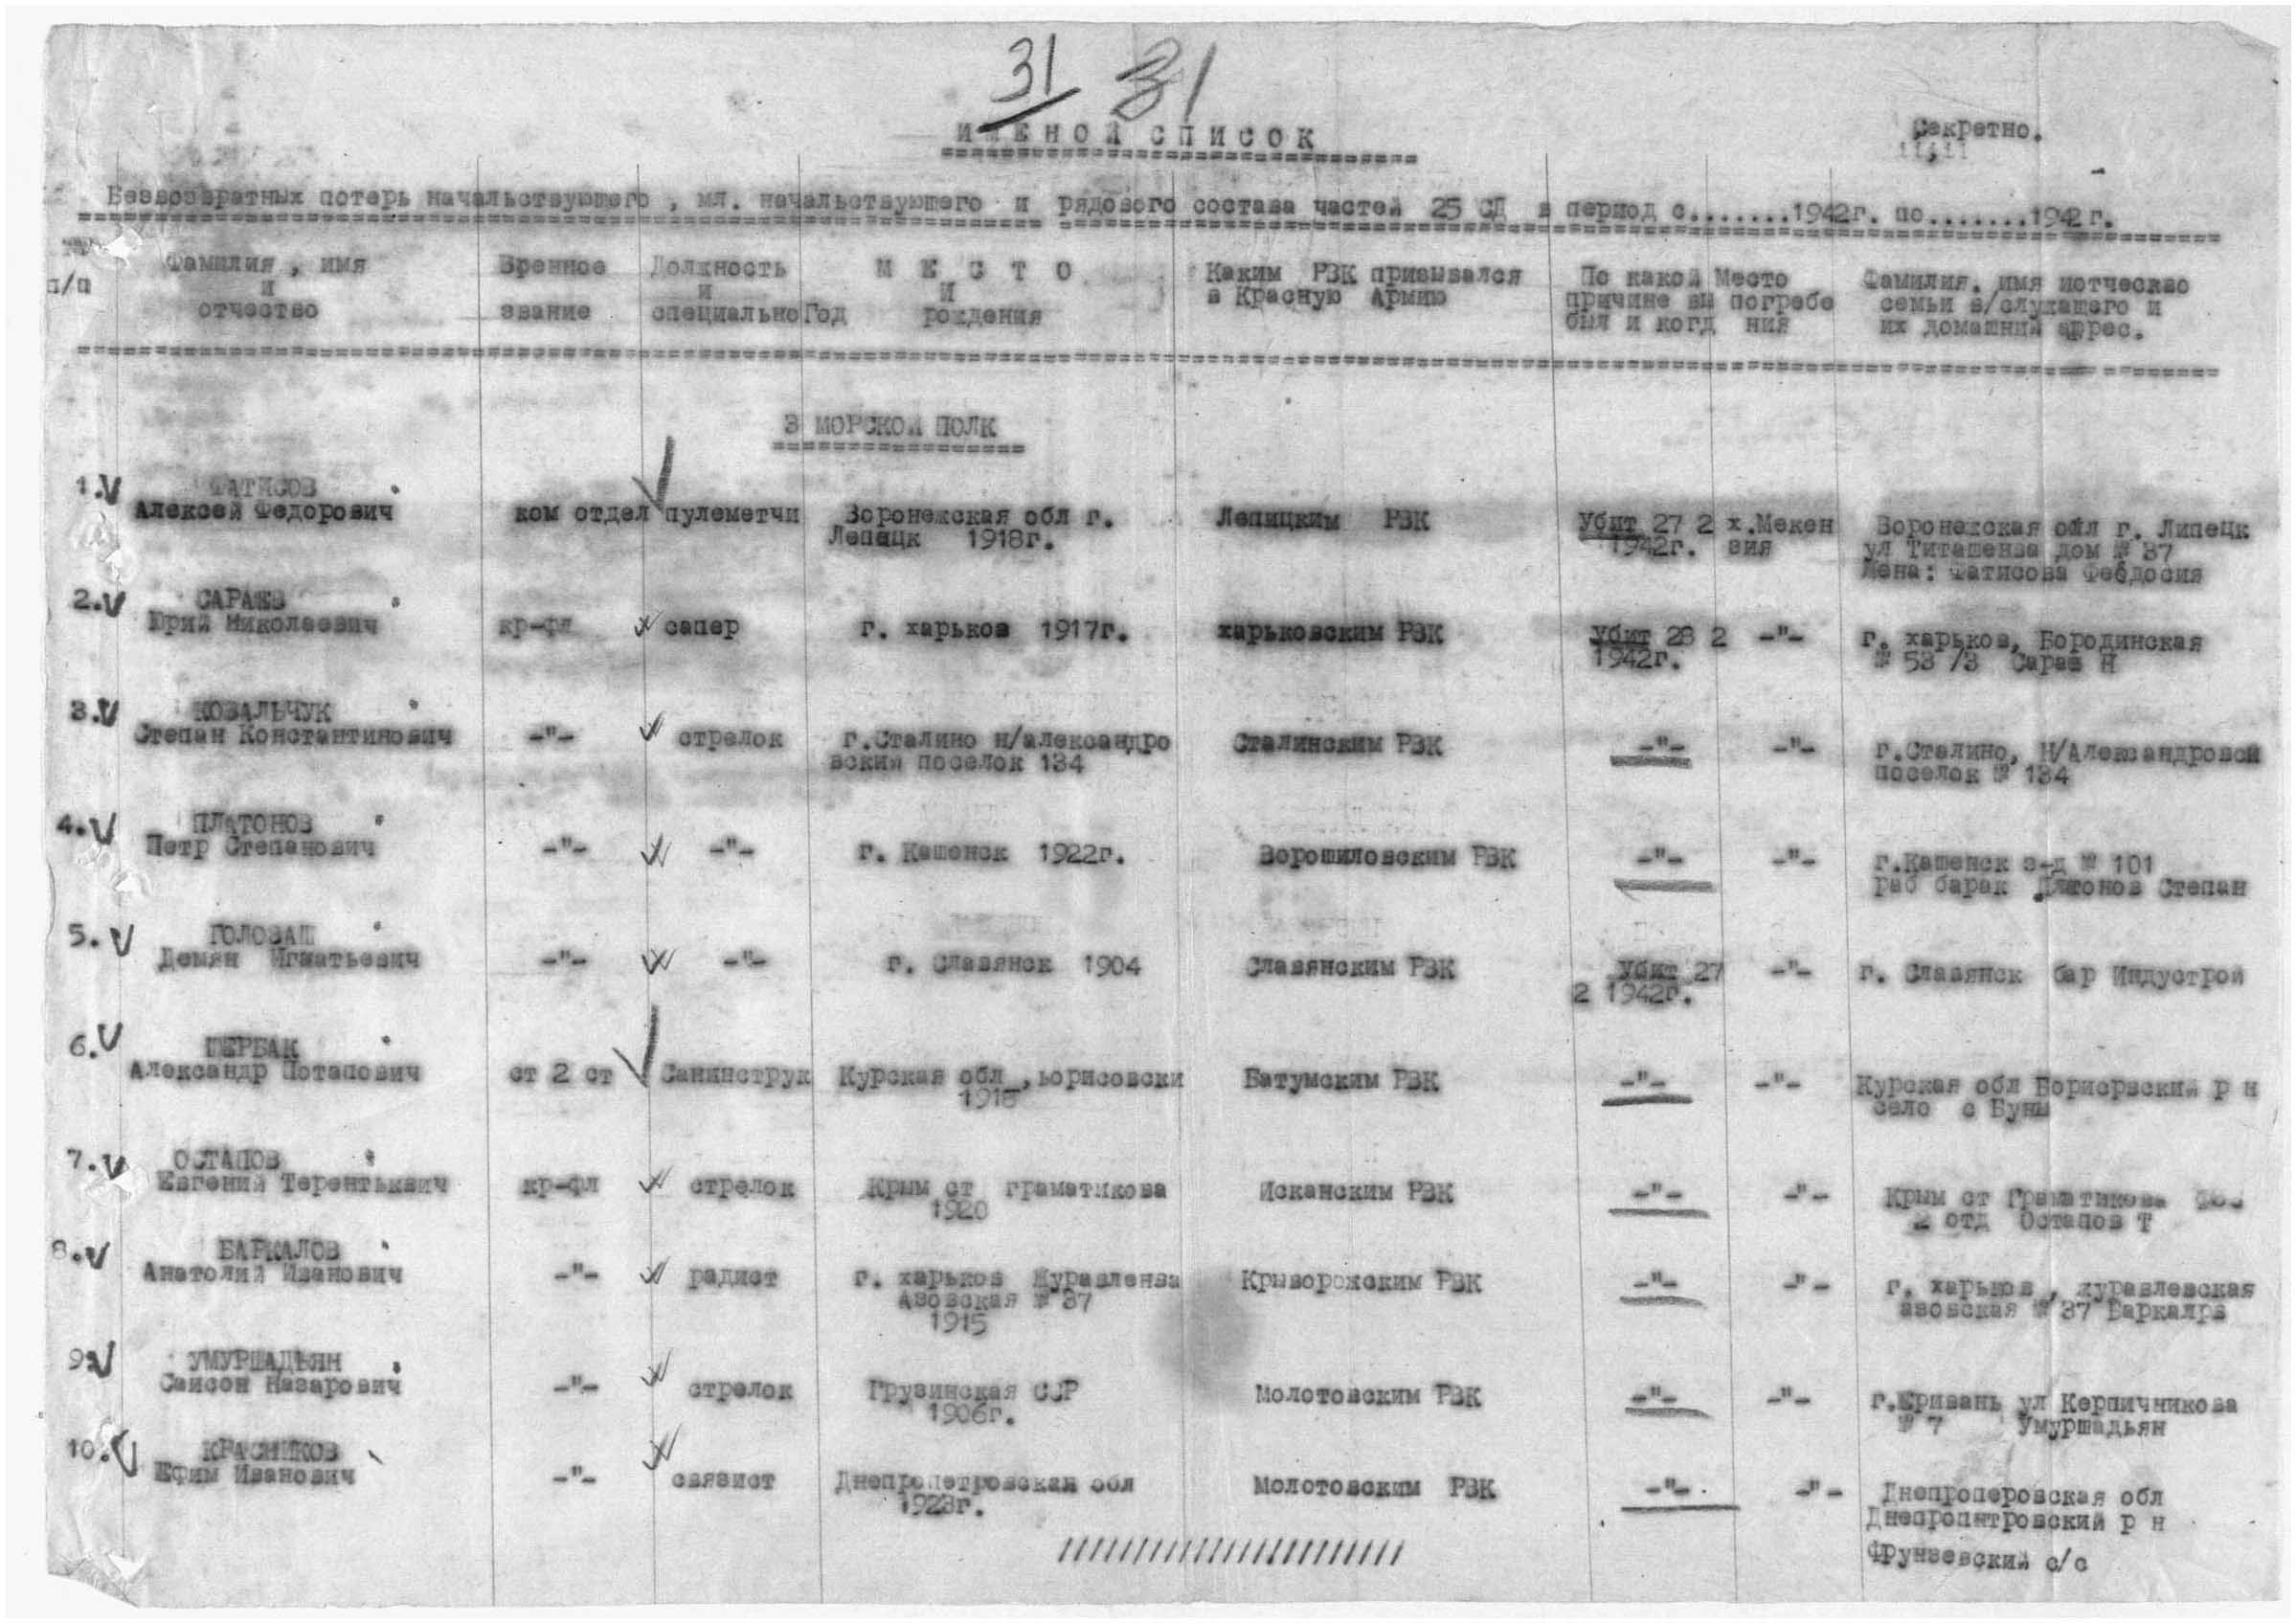 31 31
ИМЕНОЙ СПИСОК
Секретно.
Безвозвратных потерь начальствующего , мл. начальствующего и рядового состава частей 25 СД в период с.......1942г. по.......1942г.
п/п
Фамилия , имя и отчество
Военное звание
Должность и специально
Год
МЕСТО И рождения
Каким РВК призывался в Красную Армию
По какой причине вы был и когд
Место погребе ния
Фамилия. имя иотчество семьи в/служащего и их домашний аррес.
3 МОРСКОЙ ПОЛК
1. ФАТИСОВ
Алексей Федорович ком отдел пулеметчи Воронежская обл г. Лепицким РВК Убит 27 2 х.Мекен Воронежская обл г. Липецк
Лепецк 1918г. 1942г. зия ул Титашенва дом № 37
Жена: Фатисова Феодосия
2. САРАЕВ
Юрий Николаевич кр-фл сапер г. харьков 1917г. харьковским РВК Убит 28 2 -"- г. харьков, Бородинская
1942г. № 53 /3 Сараев Н
3. КОВАЛЬЧУК
Степан Константинович -"- стрелок г.Сталино н/александро Сталинским РВК -"- -"- г.Сталино, Н/Александровсй
вский поселок 134 поселок № 134
4. ПЛАТОНОВ
Петр Степанович -"- -"- г. Кашенск 1922г. Ворошиловским РВК -"- -"- г.Кашенск з-д № 101
раб барак Платонов Степан
5. ГОЛОВАШ
Демян Игнатьевич -"- -"- г. Славянск 1904 Славянским РВК Убит 27 -"- г. Славянск бар Индустрой
2 1942г.
6. ЩЕРБАК
Александр Потапович ст 2 ст Санинструк Курская обл ,Борисовски Батумским РВК -"- -"- Курская обл Борисрвский р н
1918 село с Буны
7. ОСТАПОВ
Евгений Терентьквич кр-фл стрелок Крым ст граматикова Исканским РВК -"- -"- Крым ст Граматикова
1920 2 отд Остапов Т
8. БАРКАЛОВ
Анатолий Иванович -"- радист г. харьков Журавленва Крыворожским РВК -"- -"- г. харьков , журавлевская
Азовская № 37 азовская № 37 Баркалрв
1915
9. УМУРШАДЬЯН
Саисон Назарович -"- стрелок Грузинская ССР Молотовским РВК -"- -"- г.Еривань ул Керпичникова
1906г. № 7 Умуршадьян
10. КРАСНИКОВ
Ефим Иванович -"- связист Днепропетровская обл Молотовским РВК -"- -"- Днепроперовская обл
1923г. Днепропнтровский р н
Фрунзевский с/с